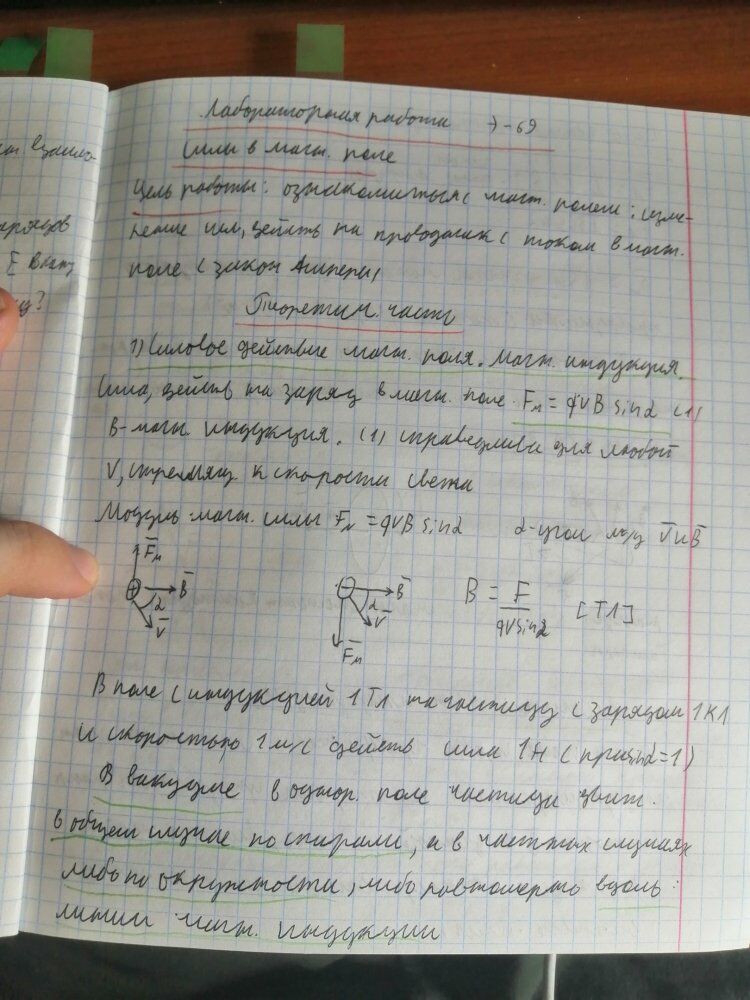 ст взаимо-
арядов
E
Лабораторная работа Э-69
Силы в магн. поле
Цель работы: ознакомиться с магн. полем: изме-
рение сил, действ на проводник с током в магн.
поле (закон Ампера)
Теоретич. часть
1) Силовое действие магн. поля. Магн. индукция.
Сила, действ на заряд в магн. поле Fм = qVB sinα (1)
B-магн. индукция. (1) справедлива для любой
V, стремящ. к скорости света
Модуль магн. силы Fм = qVB sinα α-угол м/у V̄ и B̄
F̄м
+ B̄ α V̄
- B̄ α V̄
F̄м
B = F / qVsinα [Тл]
В поле с индукцией 1Тл на частицу с зарядом 1Кл
и скоростью 1м/с действ сила 1Н (при sinα=1)
В вакууме в однор. поле частица движ.
в общем случае по спирали, а в частных случаях
либо по окружности, либо равномерно вдоль
линии магн. индукции